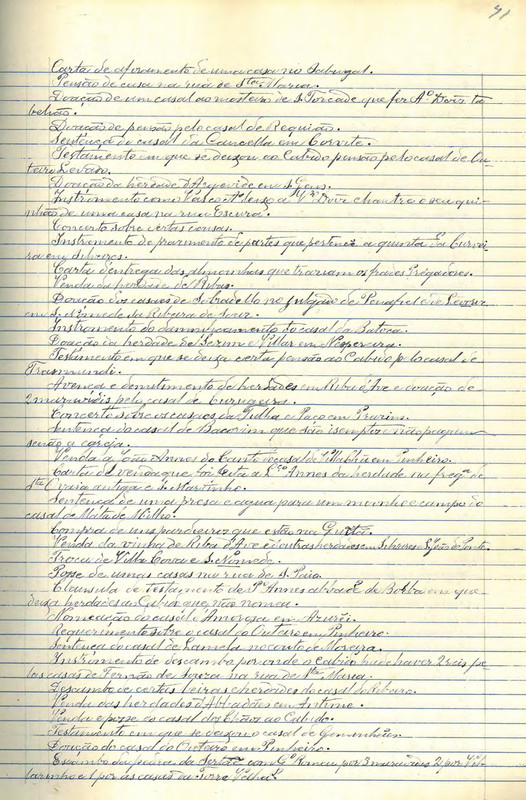 41
Carta de aforamento de uma casa no Sabugal.
Pensão de casa na rua de Sta Maria.
Doação de um casal ao mosteiro de S. Torcade que fez Ao Doiz ta
belião.
Doação de pensão pelo casal de Requião.
Sentença do casal da Cancella em Corvite.
Testamento em que se deixou ao Cabido pensão pelo casal de Ou
teiro Levado.
Doação da herdade d'Arquide em S. Gens.
Instrumento como Vasco Afonso a Mr Dove chantre o seu qui
nhão de uma casa na rua Escura.
Concerto sobre certas cousas.
Instrumento de prazimento de partes que pertence a quinta da
ra em Silvares.
Carta d'entrega das almoinhas que traziam os frades Prégadores.
Venda da herdade de Ribas.
Doação dos casaes de Sobradello no julgado de Penafiel e de
em S. Mamede da Ribeira de Sever.
Instrumento do damnificamento do casal da Batoca.
Doação da herdade de Sezim e Villar em Nespereira.
Testamento em que se deixa certa pensão ao Cabido plo casal de
Trasmundi.
Avença e demetimento de herdades em Riba d'Ave e doação de
2 maravidis pelo casal de Corugeira.
Concerto sobre os casaes da Tulha e Paço em
Sentença do casal de Bacorim que são isemptos e não paguem
senão a egreja.
Venda a João Annes do Canto do casal de em Pinheiro.
Carta de venda que foi feita a Annes da herdade na fregª de
Sta Ovaia antiga e de Martinho.
Sentença de uma presa e agua para um moinho e campo do
casal de Mata de Milho.
Compra de uns pardieiros que estão na
Venda da vinha de Riba d'Ave e d'outras herdades em Silvares e S. João de Ponte.
Troca de Villa Cova e S. Mamede.
Posse de umas casas na rua de S. Paio.
Clausula de testamento de Annes
deixa herdades ao Cabido que não nomea.
Nomeação do casal d'Amorosa em Azurei.
Requerimento sobre o casal do Outeiro em Pinheiro.
Sentença do casal de Lamela no couto de Moreira.
Instrumento de descambo por onde o cabido ha de haver 2 reis pe
las casas de Fernão de Souza na rua de Sta Maria.
Descambo de certas leiras e herdades do casal do Ribeiro.
Venda das herdades d'Abbadães em Antime.
Venda e posse do casal dos ao Cabido.
Testamento em que se deixou o casal de Gominhães.
Doação do casal do Outeiro em Pinheiro.
Escambo da pedra da com Go Romeu por 3 maravidis 2 por
tarinho e 1 por as casas da Torre Velha.